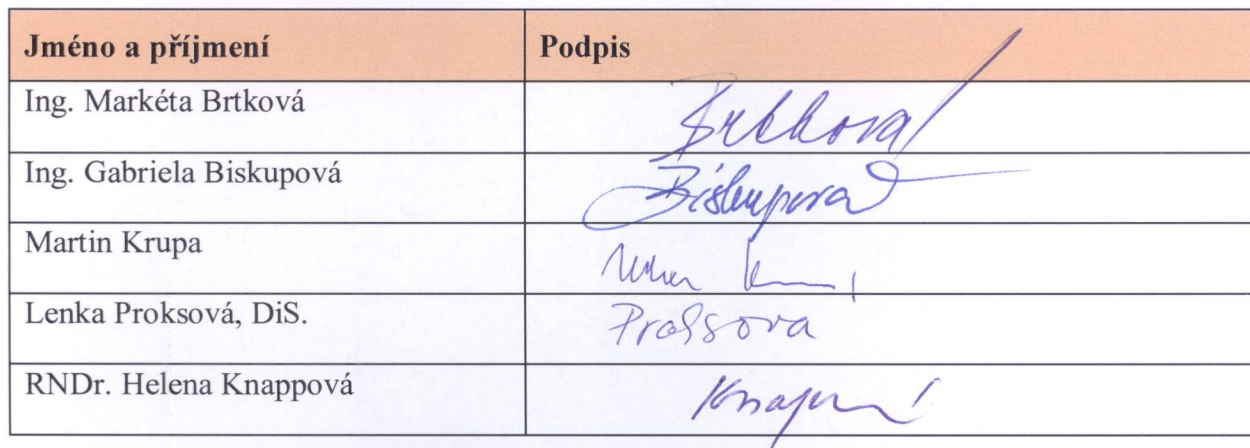 Jméno a příjmení Podpis
Ing. Markéta Brtková Brtkova
Ing. Gabriela Biskupová Biskupova
Martin Krupa
Lenka Proksová, DiS. Proksova
RNDr. Helena Knappová